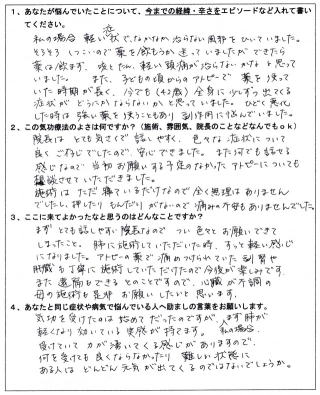 1、あなたが悩んでいたことについて、今までの経緯・辛さをエピソードなど入れて書い
てください。
私の場合 軽い症状で、なかなか治らない風邪をひいていました。
そろそろ しつこいので薬を飲もうか迷っていましたができたら
薬は飲まず、咳とたん、軽い頭痛が治らないかなと思って
いました。 また、子どもの頃からのアトピーで 薬を使って
いた時期が長く、今でも(42歳)全身に少しずつ出てくる
症状が どうにかならないかと思っていました。ひどく悪化
した時は強い薬を使うこともあり 副作用に悩んでいました。
2、この気功療法のよさは何ですか？（施術、雰囲気、院長のことなどなんでもok）
院長は とても気さくで 話しやすく、色々な症状について
良く ご存じでしたので 安心できました。また何でも話せる
感じなので 当初 お願いする予定のなかったアトピーについても
相談させていただきました。
施術は ただ 寝ているだけなので 全く無理はありません
でしたし、押したり もんだり がないので 痛みの不安もありませんでした。
3、ここに来てよかったなと思うのはどんなことですか？
まず とても話しやすい院長なので つい 色々と お願いできて
しまったこと。 肺に施術していただいた時、すっと軽い感じ
になりました。アトピーの薬で 痛めつけられていた 副腎や
肝臓も 丁寧に 施術していただけたので 今後が楽しみです。
また 遠隔も できるとのことですので、心臓が不調の
母の施術も 是非 お願いしたいと思います。
4、あなたと同じ症状や病気で悩んでいる人へ励ましの言葉をお願いします。
気功を受けたのは 始めてだったのですが、まず 肺が
軽くなり 効いている 実感が 持てます。 私の場合、
受けていて 力が湧いてくる感じがありますので、
何を受けても 良くならなかったり 難しい状態に
ある人は どんどん 元気が 出てくるのではないでしょうか。